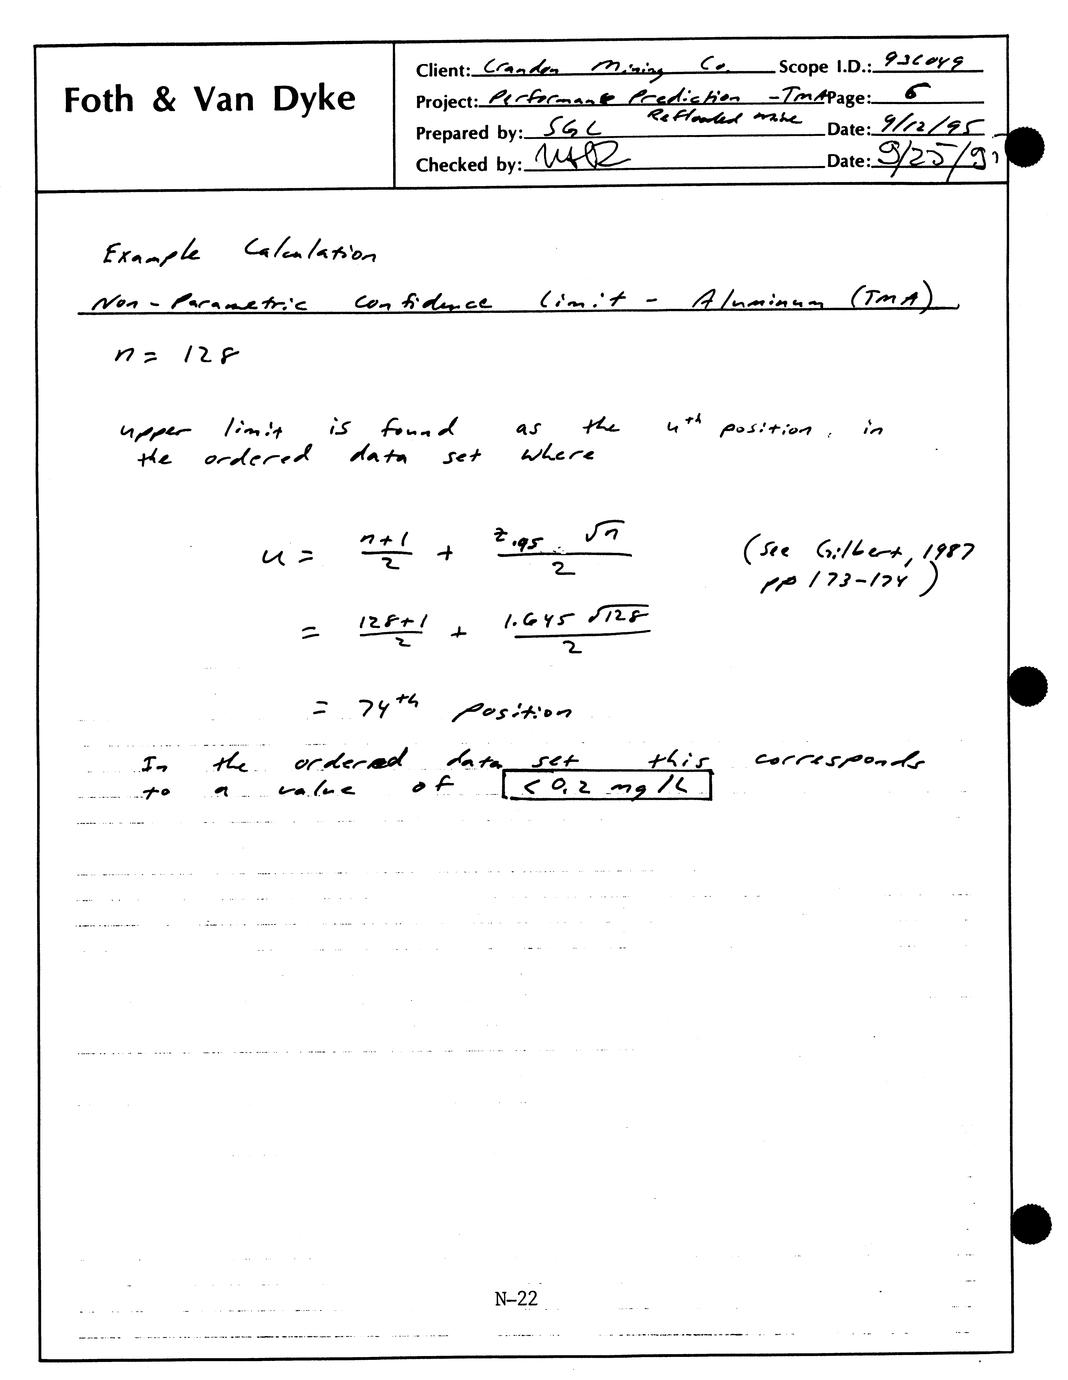 Foth & Van Dyke
Client: Crandon Mining Co. Scope I.D.: 93C049
Project: Performance Prediction - TMA Page: 6
Reflooded mine
Prepared by: SGL Date: 9/12/95
Checked by: Date: 9/25/95
Example Calculation
Non-Parametric Confidence Limit - Aluminum (TMA)
n = 128
upper limit is found as the uth position, in
the ordered data set where
u = n+1/2 + z.95 √n/2 (see Gilbert, 1987
pp 173-174)
= 128+1/2 + 1.645 √128/2
= 74th position
In the ordered data set this corresponds
to a value of < 0.2 mg/L
N-22